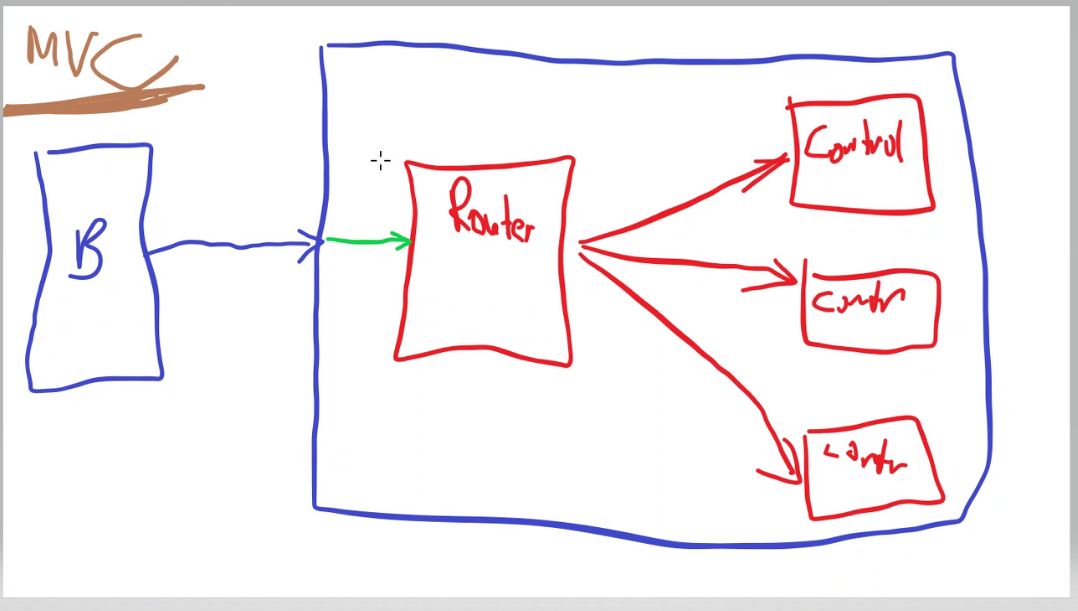 MVC
B
Router
Control
Contr
Contr